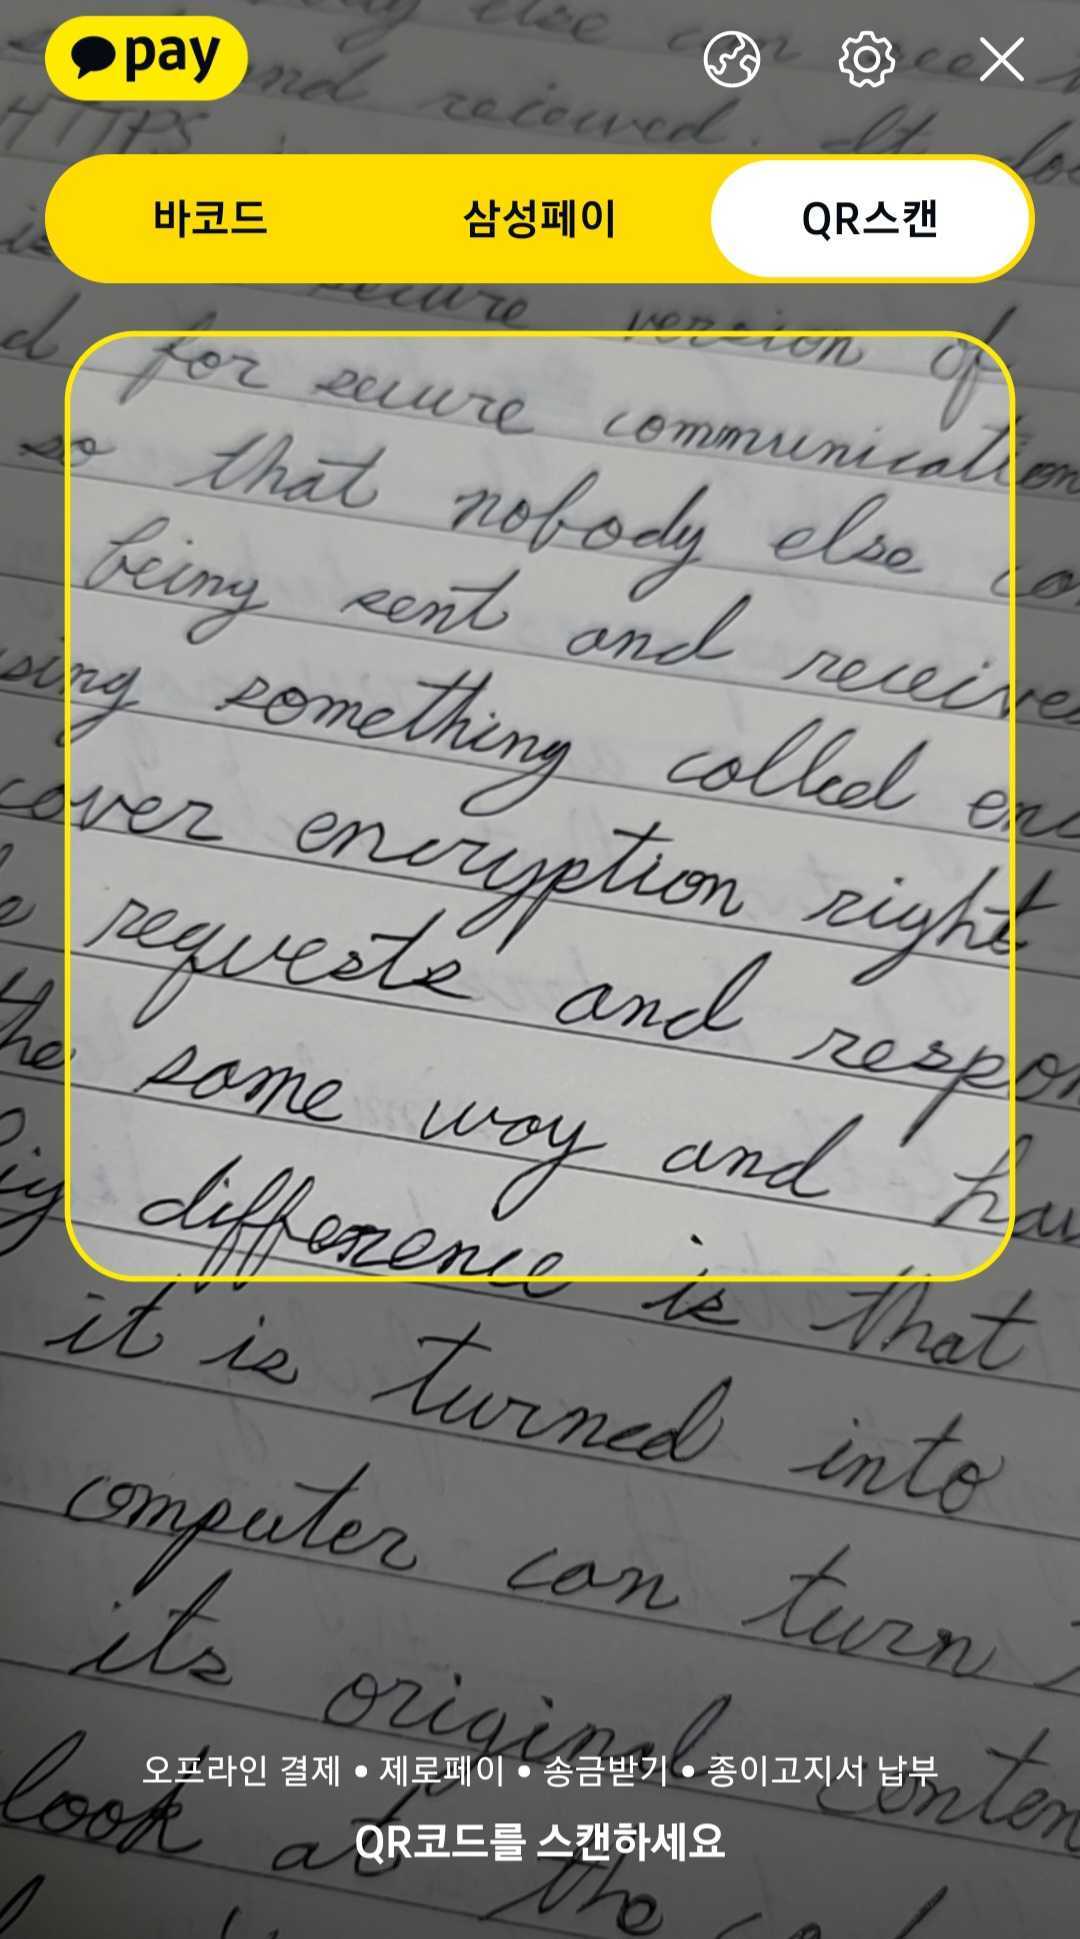 pay
바코드 삼성페이 QR스캔
else can
and recieved. It
HTTPS
secure version of
for secure communication
so that nobody else
being sent and
something called
cover encryption right
requests and
the same way and
difference is that
it is turned into
computer can turn
its original
오프라인 결제 • 제로페이 • 송금받기 • 종이고지서 납부
look at the
QR코드를 스캔하세요